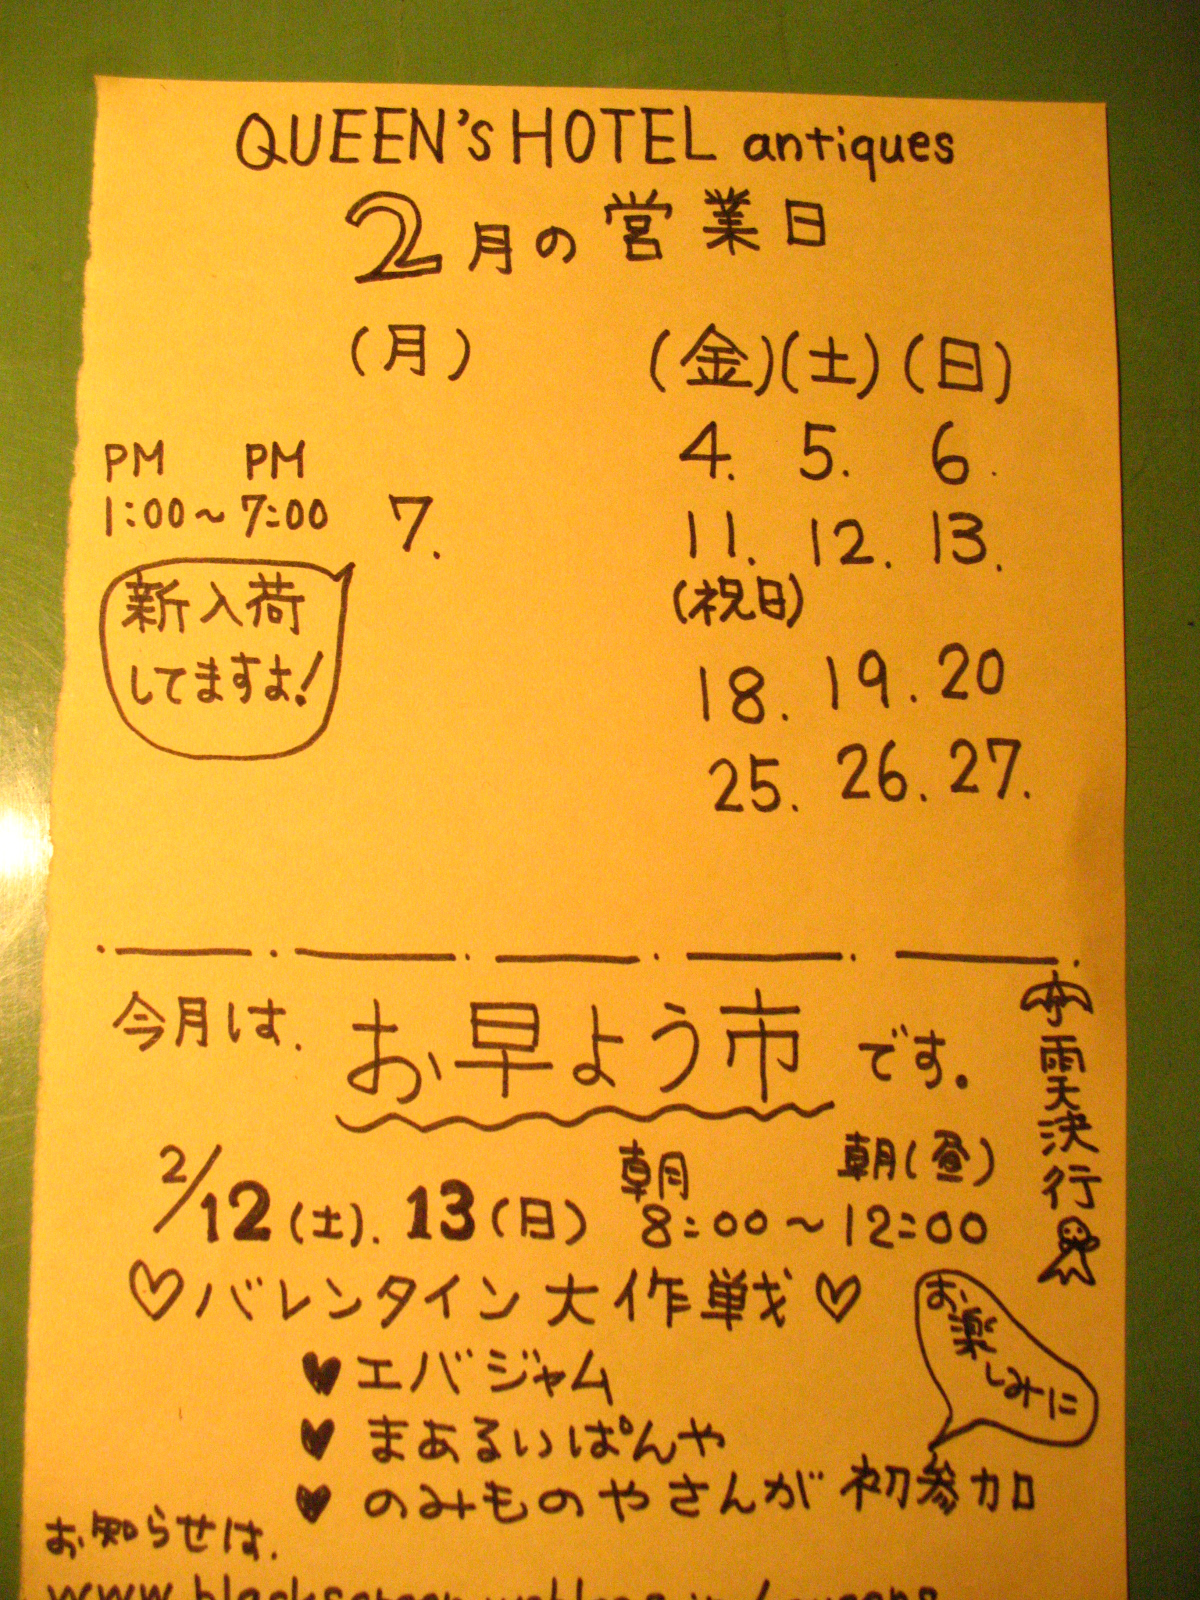 QUEEN'S HOTEL antiques
2月の営業日
(月) (金)(土)(日)
4. 5. 6.
PM PM
1:00～7:00 7.
11. 12. 13.
(祝日)
新入荷
してますよ!
18. 19. 20
25. 26. 27.
今月は. お早よう市です。
雨天決行
2/12(土). 13(日) 朝8:00～朝(昼)12:00
♡バレンタイン大作戦♡
♥エバジャム
♥まあるいぱんや
♥のみものやさんが初参加
お楽しみに
お知らせは.